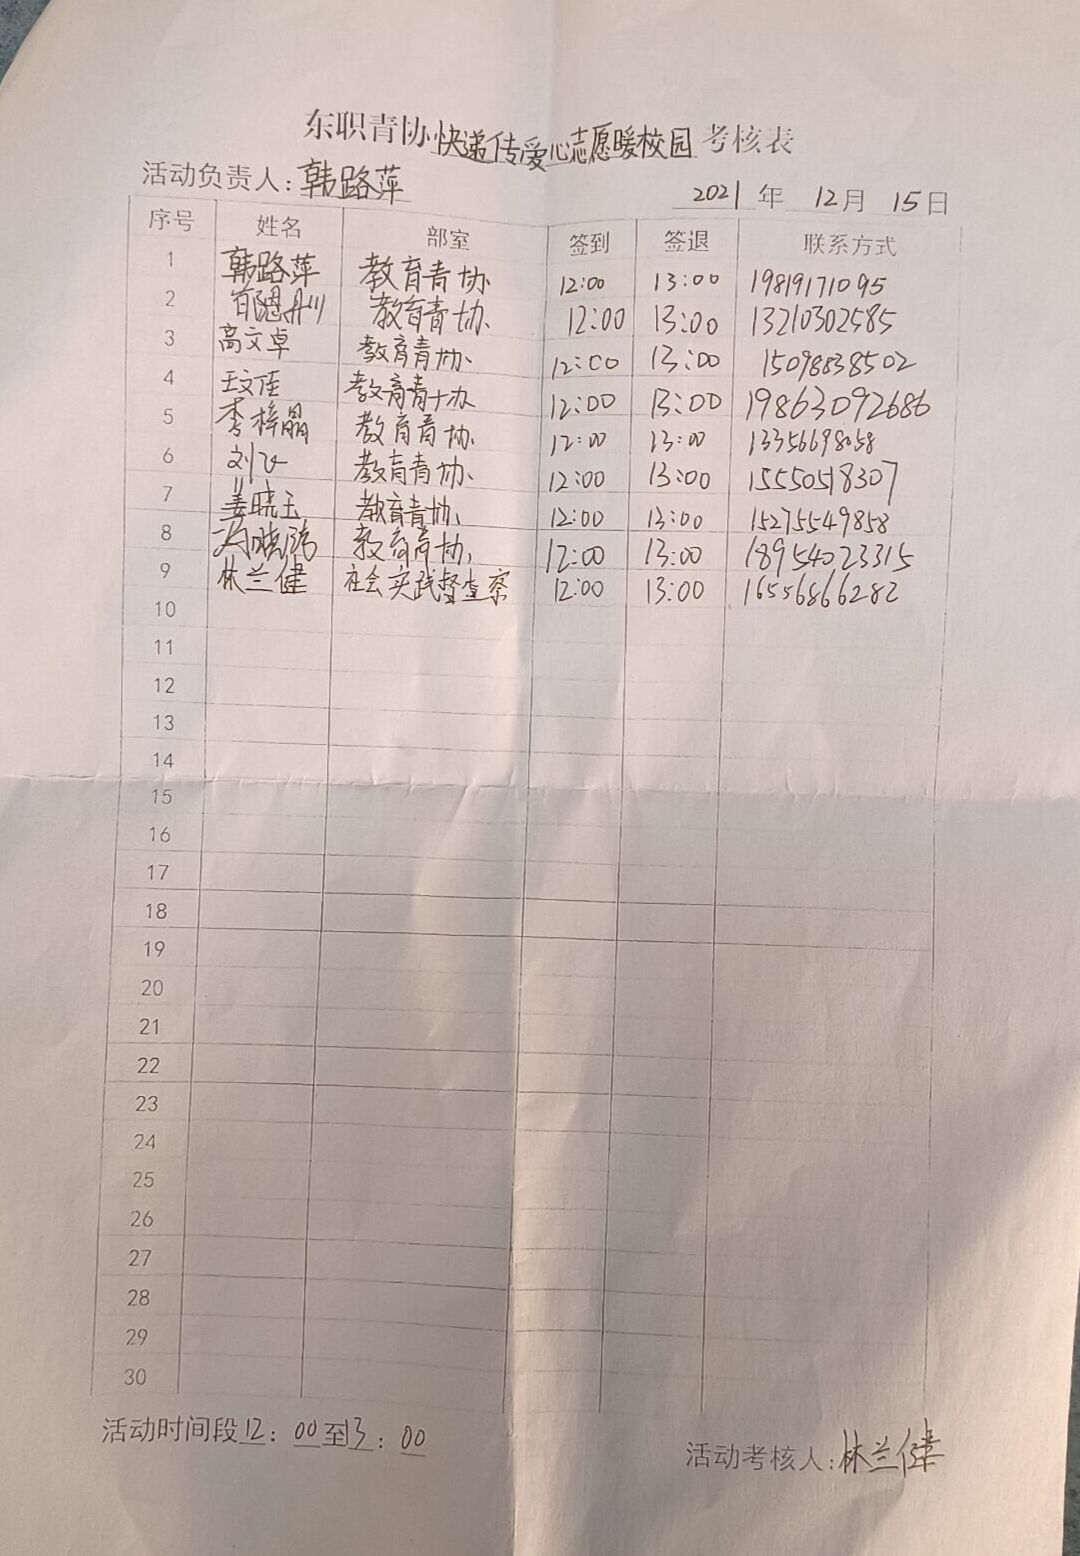 东职青协快递传爱心志愿暖校园考核表
活动负责人：韩路萍 2021 年 12月 15日
序号 姓名 部室 签到 签退 联系方式
1 韩路萍 教育青协 12:00 13:00 19819171095
2 教育青协 12:00 13:00 13210302585
3 高文卓 教育青协 12:00 13:00 15098838502
4 王文佳 教育青协 12:00 13:00 19863092686
5 李梓晶 教育青协 12:00 13:00 13356698058
6 刘飞 教育青协 12:00 13:00 15550518307
7 姜晓玉 教育青协 12:00 13:00 15275549858
8 教育青协 12:00 13:00 18954023315
9 林兰健 社会实践督查察 12:00 13:00 16556866282
10
11
12
13
14
15
16
17
18
19
20
21
22
23
24
25
26
27
28
29
30
活动时间段12：00至13：00
活动考核人：林兰健